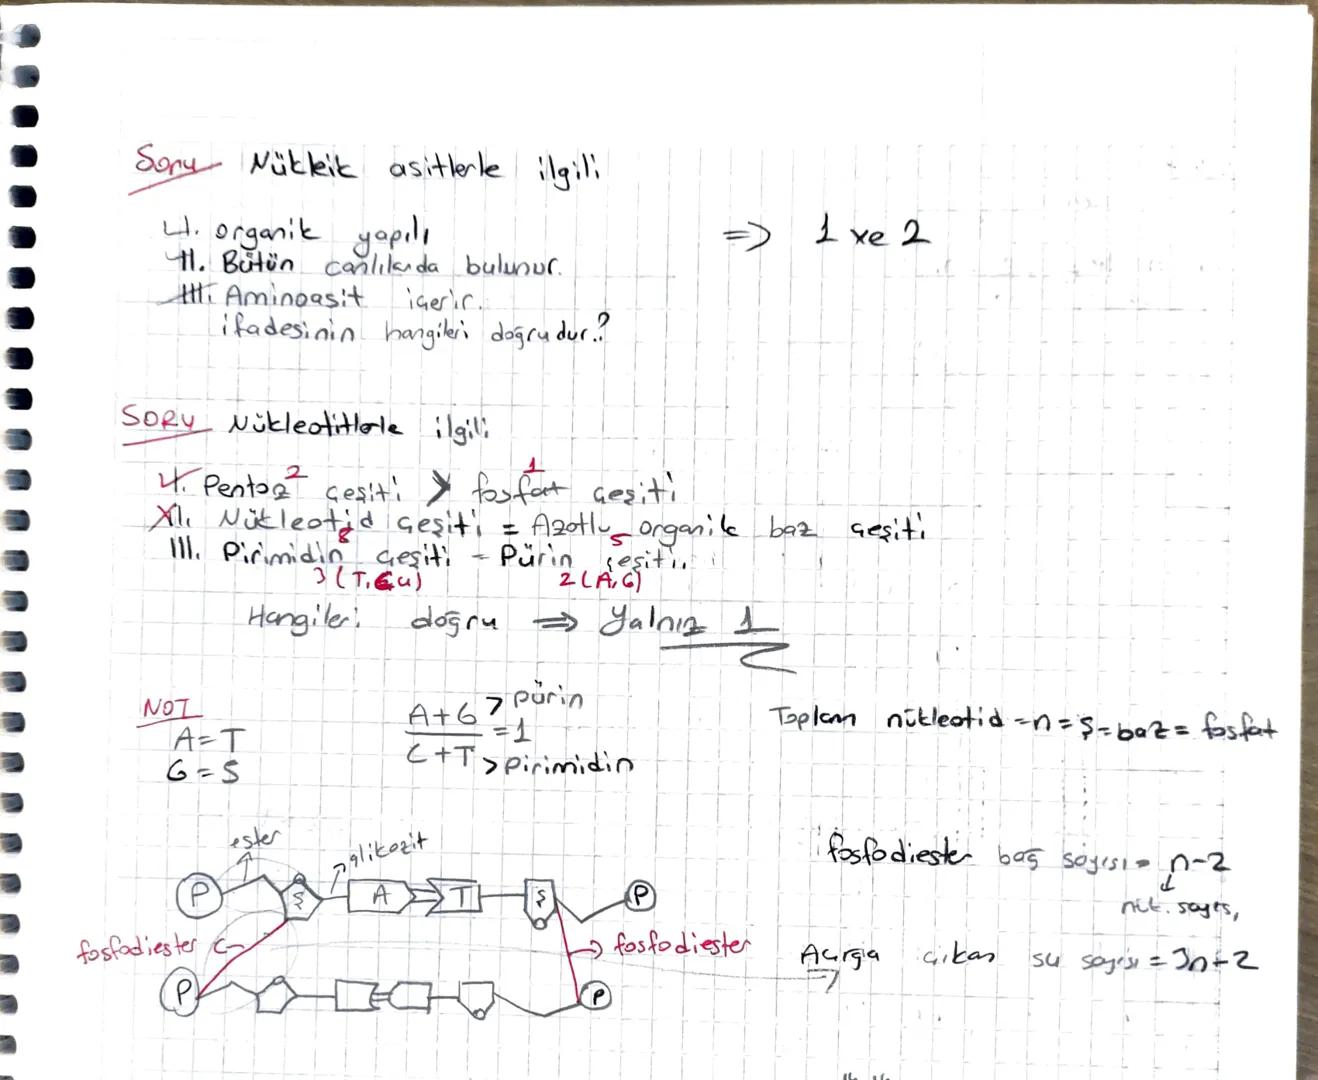 Soru Nükleik asitlerle ilgili
I. organik yapılı
II. Bütün canlılarda bulunur.
III. Aminoasit içerir.
ifadesinin hangileri doğrudur.?
=> 1 ve 2
SORU Nükleotitlerle ilgili
I. Pentoz çeşiti > fosfat çeşiti
2 1
II. Nükleotid çeşiti = Azotlu organik baz çeşiti
8 5
III. Pirimidin çeşiti = Pürin çeşiti.
3 (T, C, U) 2 (A, G)
Hangileri doğru => Yalnız 1
NOT
A=T
G=S
A+G > pürin
= 1
C+T > pirimidin
Toplam nükleotid = n = Ş = baz = fosfat
ester
glikozit
P Ş A T Ş P
fosfodiester
fosfodiester
P P
fosfodiester bağ sayısı = n-2
nük. sayısı
Açığa çıkan su sayısı = 3n-2